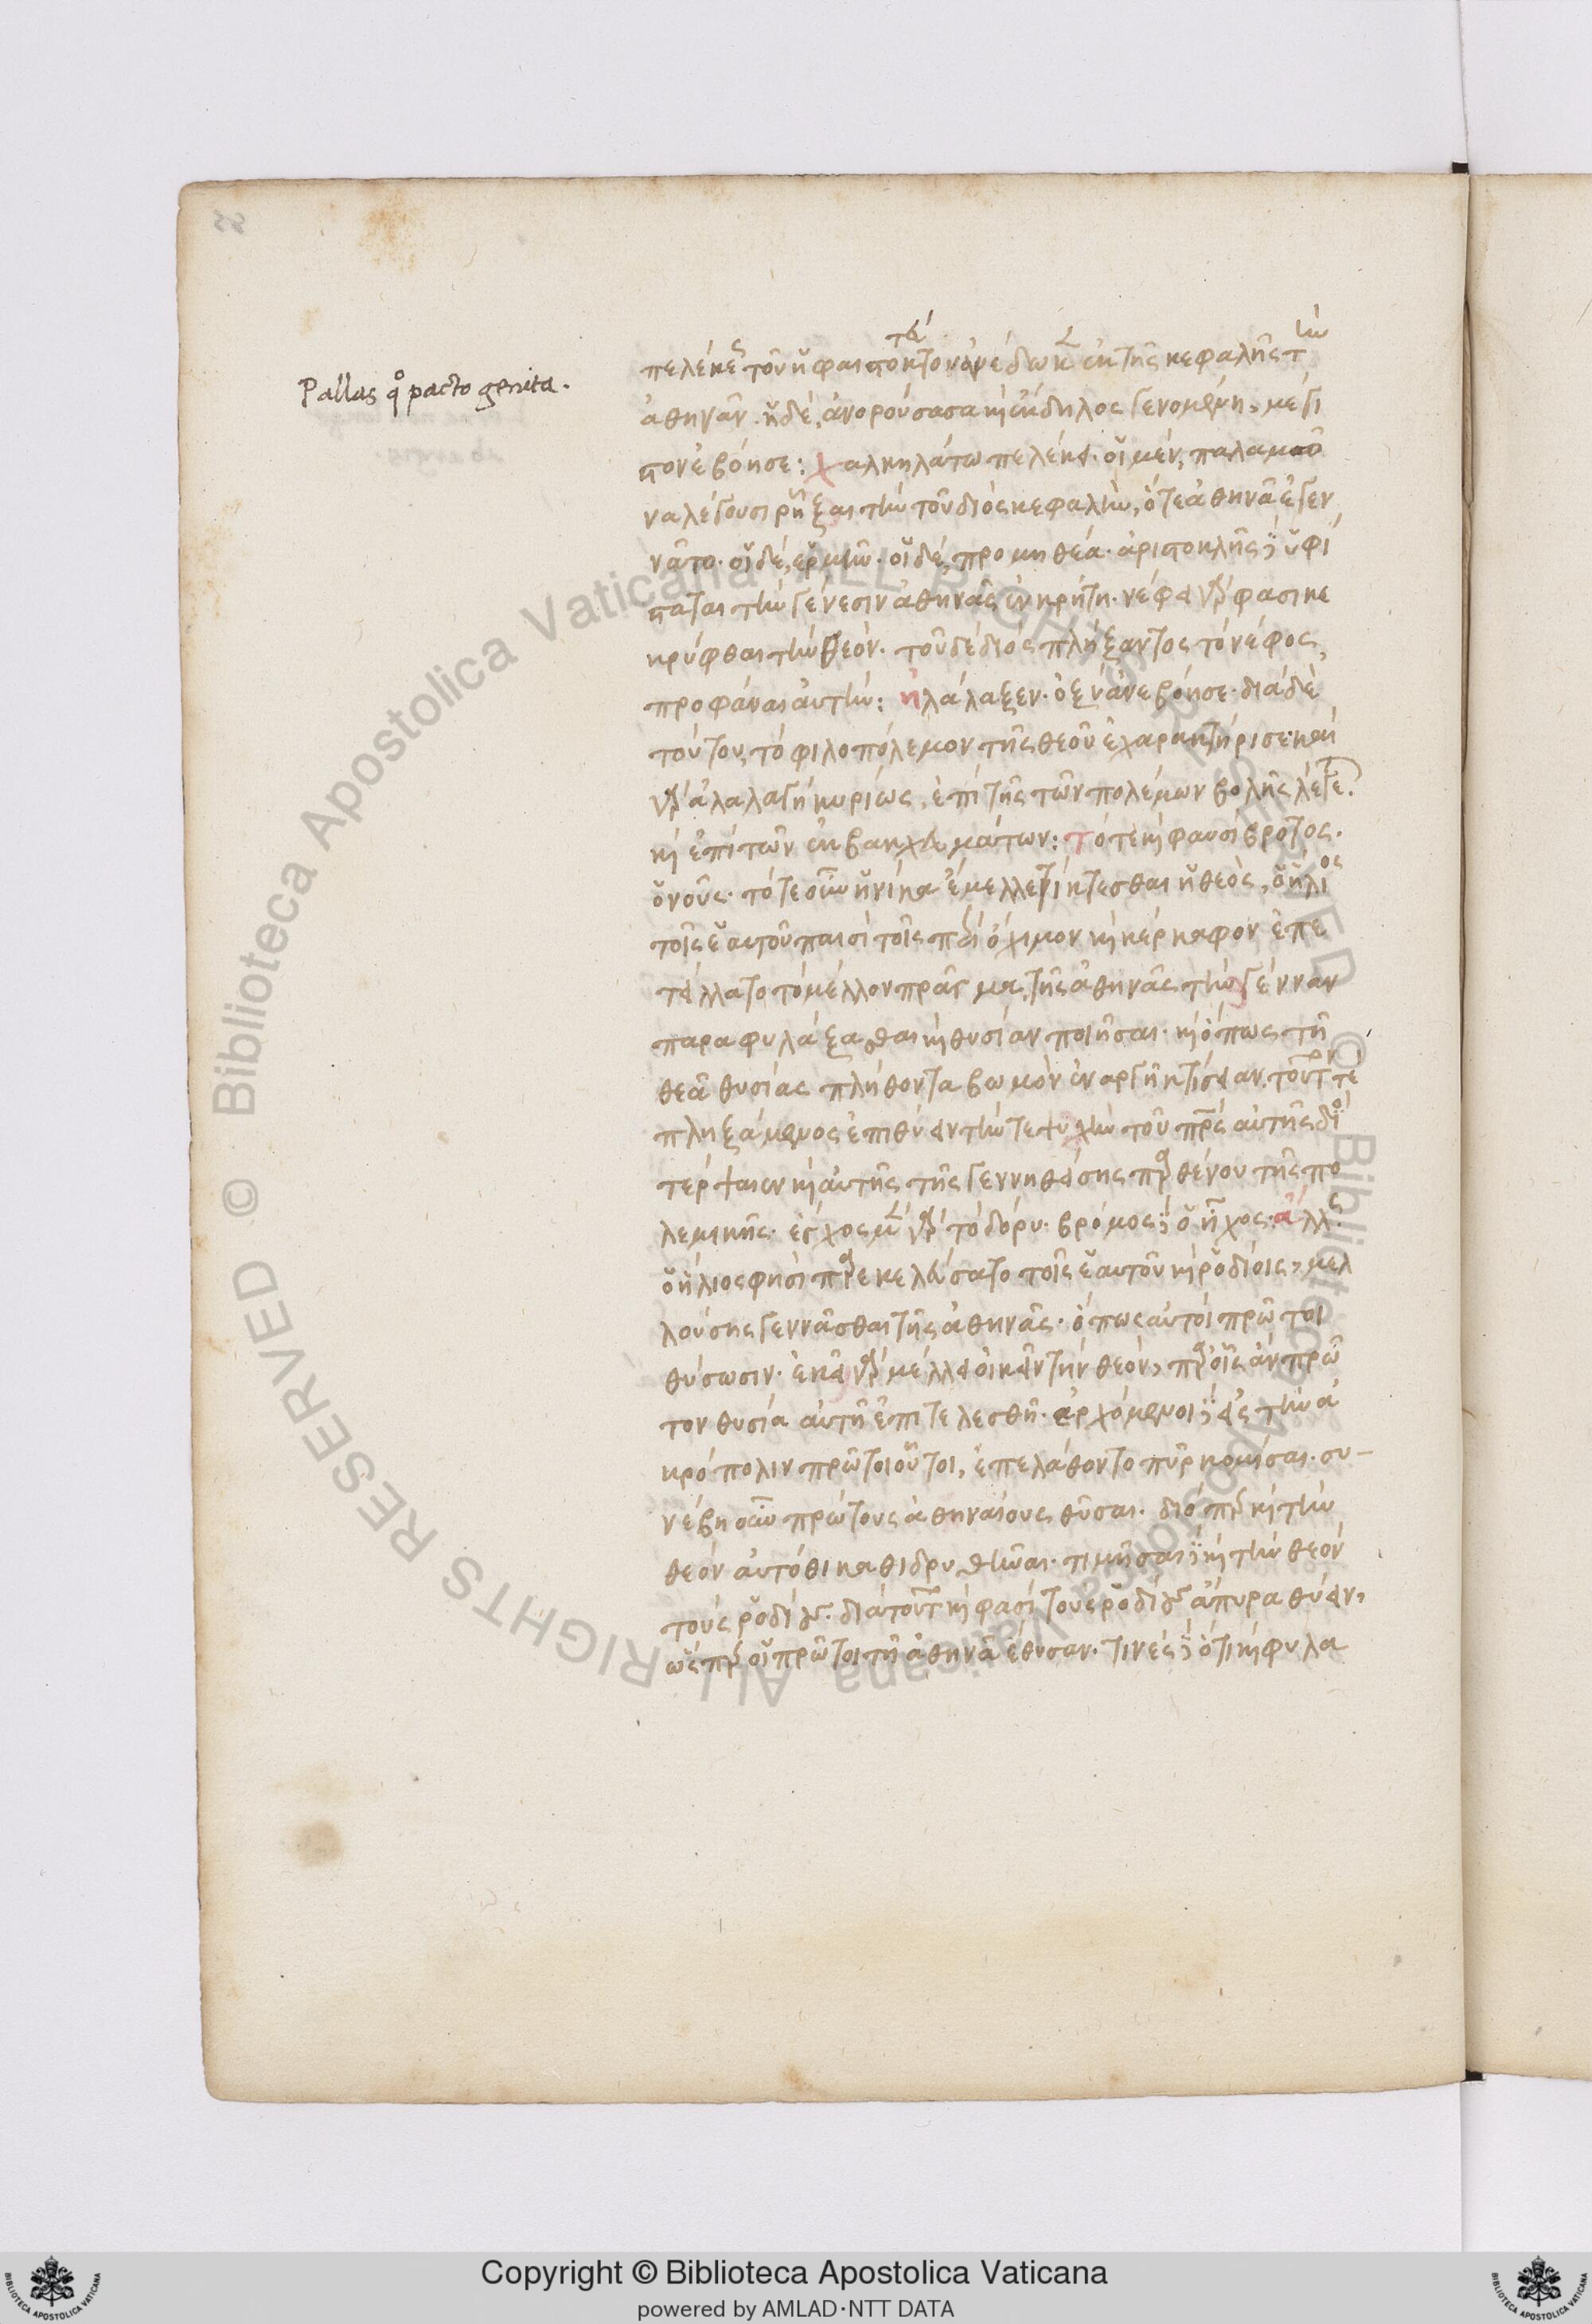 Pallas qo pacto genita.
πελέκει τοῦ ἡφαίστου κτυπουμένου ἀνέδωκεν ἐκ τῆς κεφαλῆς τὴν
ἀθηνᾶν. ἡ δὲ, ἀνορούσασα καὶ ἔκδηλος γενομένη, μέγι
στον ἐβόησε: χαλκηλάτω πελέκει. οἱ μὲν, παλαμάο
να λέγουσι ῥῆξαι τὴν τοῦ διὸς κεφαλὴν, ὅτε ἀθηνᾶ ἐγεν
νᾶτο. οἱ δὲ, ἑρμῆν. οἱ δὲ, προμηθέα. ἀριστοκλῆς δὲ ὑφί
σταται τὴν γένεσιν ἀθηνᾶς ἐν κρήτη. νέφει γάρ φασι κε
κρύφθαι τὴν θεόν. τοῦ δὲ διὸς πλήξαντος τὸ νέφος,
προφάναι αὐτήν: ἠλάλαξεν. ὀξὺ ἀνεβόησε. διὰ δὲ
τούτου, τὸ φιλοπόλεμον τῆς θεοῦ ἐχαρακτήρισε. καὶ
γὰρ ἀλαλαγὴ κυρίως, ἐπὶ τῆς τῶν πολέμων βολῆς λέγεται.
καὶ ἐπὶ τῶν ἐκβακχευμάτων: τότε καὶ φαυσίβροτος.
ὁ νοῦς. τότε οὖν ἡνίκα ἔμελλε τίκτεσθαι ἡ θεὸς, ὁ ἥλιος
τοῖς ἑαυτοῦ παισὶ τοῖς περὶ ὄχιμον καὶ κέρκαφον ἐπε
τείλατο τὸ μέλλον πρᾶγμα, τῆς ἀθηνᾶς τὴν γένναν
παραφυλάξασθαι καὶ θυσίαν ποιῆσαι. καὶ ὅπως τῆ
θεᾶ θυσίας πλήθοντα βωμὸν ἐναργῆ κτίσειαν.
πληξάμενος ἐπιθύειν τήν τε ψυχὴν τοῦ πατρὸς αὐτῆς διὸς
τέρψαιεν καὶ αὐτῆς τῆς γεννηθείσης παρθένου τῆς πο
λεμικῆς. ἔγχος μὲν γὰρ τὸ δόρυ. βρόμος δὲ ὁ ἦχος. ἄλλως.
ὁ ἥλιος φησὶ παρεκελεύσατο τοῖς ἑαυτοῦ καὶ ῥοδίοις, μελ
λούσης γεννᾶσθαι τῆς ἀθηνᾶς. ὅπως αὐτοὶ πρῶτοι
θύσωσιν. ἐκεῖ γὰρ μέλλει οἰκεῖν τὴν θεὸν, παρ' οἷς ἂν πρῶ
τον θυσία αὐτῆ ἐπιτελεσθῆ. ἀρχόμενοι δὲ εἰς τὴν ἀ
κρόπολιν πρῶτοι οὗτοι, ἐπελάθοντο πῦρ κομίσαι. συ-
νέβη οὖν πρώτους ἀθηναίους θῦσαι. διόπερ καὶ τὴν
θεὸν αὐτόθι καθιδρυθῆναι. τιμῆσαι δὲ καὶ τὴν θεὸν
τοὺς ῥοδίους. διὰ τοῦτο καὶ φασὶ τοὺς ῥοδίους ἄπυρα θύειν,
ὥσπερ οἱ πρῶτοι τῆ ἀθηνᾶ ἔθυσαν. τινὲς δὲ ὅτι καὶ φυλα
Copyright © Biblioteca Apostolica Vaticana
powered by AMLAD·NTT DATA